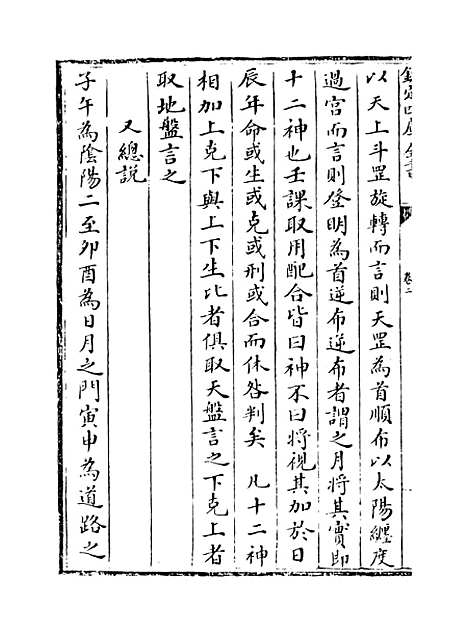 欽定四庫全書
卷二
以天上斗罡旋轉而言則天罡為首順布以太陽纏度
過宫而言則登明為首逆布逆布者謂之月將其實即
十二神也壬課取用配合皆曰神不曰將視其加於日
辰年命或生或克或刑或合而休咎判矣 凡十二神
相加上克下與上下生比者俱取天盤言之下克上者
取地盤言之
又總説
子午為陰陽二至卯酉為日月之門寅申為道路之